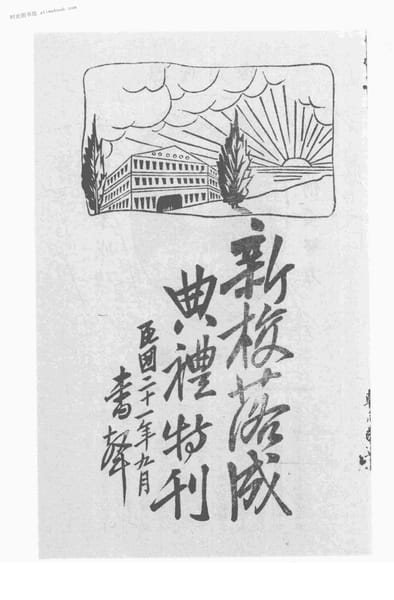 时光图书馆 atimebook.com
新校落成
典禮特刊
民國二十一年九月